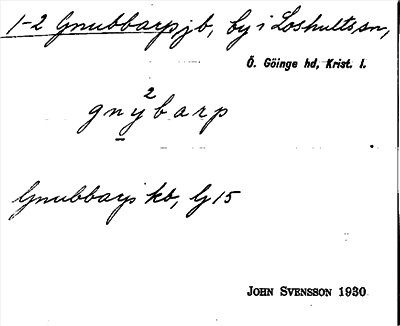 1-2 Gnubbarpsjb, by i Loshults sn,
Ö. Göinge hd, Krist. l.
gnȳ²barp
Gnubbarps kb, G 15
JOHN SVENSSON 1930